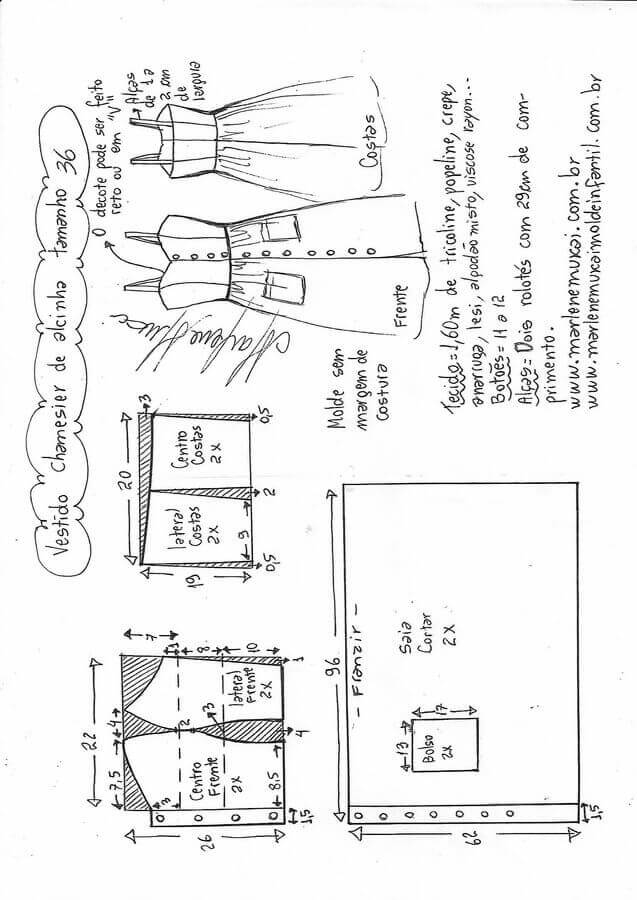 Vestido Chamesier de alcinha tamanho 36
O decote pode ser feito
reto ou em "V"
Alças
de 1 a
2 cm
de
largura
Costas
Frente
Marlene Mukai
Molde sem
margem de
costura
Tecido=1,60m de tricoline, popeline, crepe,
anarruga, lesi, algodão misto, viscose rayon...
Botões= 11 a 12
Alças= Dois rolotês com 29cm de com-
primento.
www.marlenemukai.com.br
www.marlenemukaimoldeinfantil.com.br
20
3
19
Centro
Costas
2X
lateral
Costas
2X
9
0,5
2
0,5
22
7,5
4
7
1
8
10
3
2
3
26
Centro
Frente
2X
lateral
Frente
2X
8,5
4
1
1,5
96
- Franzir -
Saia
Cortar
2X
13
17
Bolso
2X
62
1,5